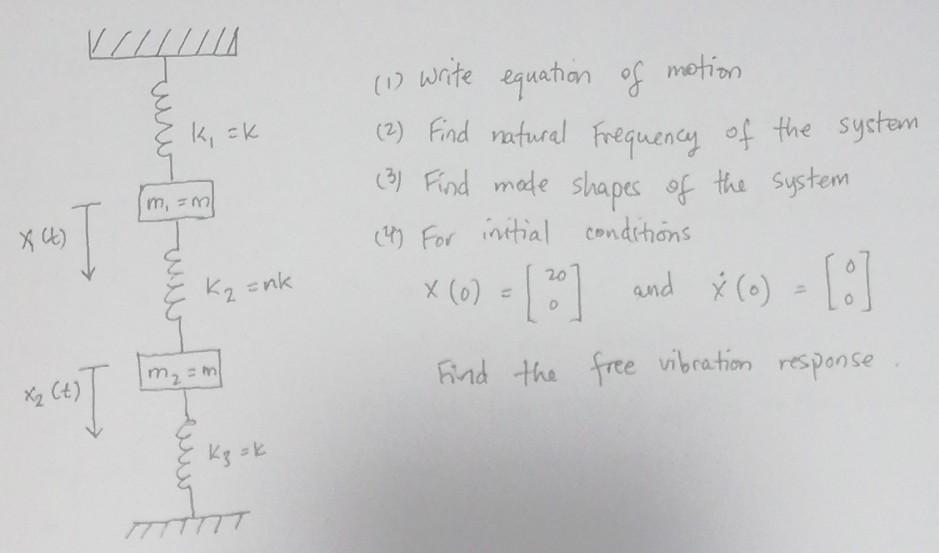 K₁ = K
m₁ = m
x₁(t)
K₂ = nk
m₂ = m
x₂(t)
K₃ = k
(1) Write equation of motion
(2) Find natural Frequency of the system
(3) Find mode shapes of the system
(4) For initial conditions
x(0) = [20 0] and ẋ(0) = [0 0]
Find the free vibration response.